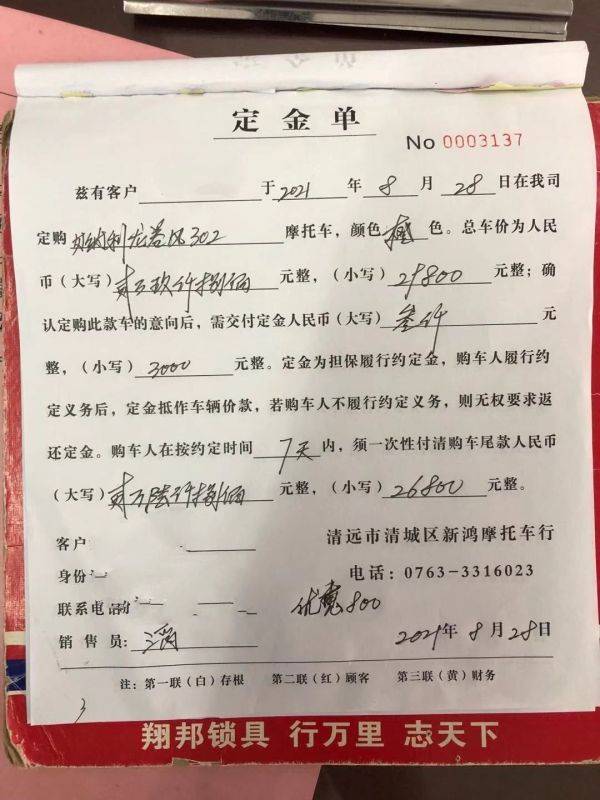 定金单
No 0003137
兹有客户 于 2021 年 8 月 28 日在我司
定购 贝纳利龙卷风302 摩托车，颜色 橙 色。总车价为人民
币（大写）贰万玖仟捌佰 元整，（小写）29800 元整；确
认定购此款车的意向后，需交付定金人民币（大写）叁仟 元
整，（小写）3000 元整。定金为担保履行约定金，购车人履行约
定义务后，定金抵作车辆价款，若购车人不履行约定义务，则无权要求返
还定金。购车人在按约定时间 7天 内，须一次性付清购车尾款人民币
（大写）贰万陆仟捌佰 元整，（小写）26800 元整。
客户
清远市清城区新鸿摩托车行
身份
电话：0763-3316023
联系电话
优惠800
销售员：
2021年8月28日
注：第一联（白）存根 第二联（红）顾客 第三联（黄）财务
翔邦锁具 行万里 志天下